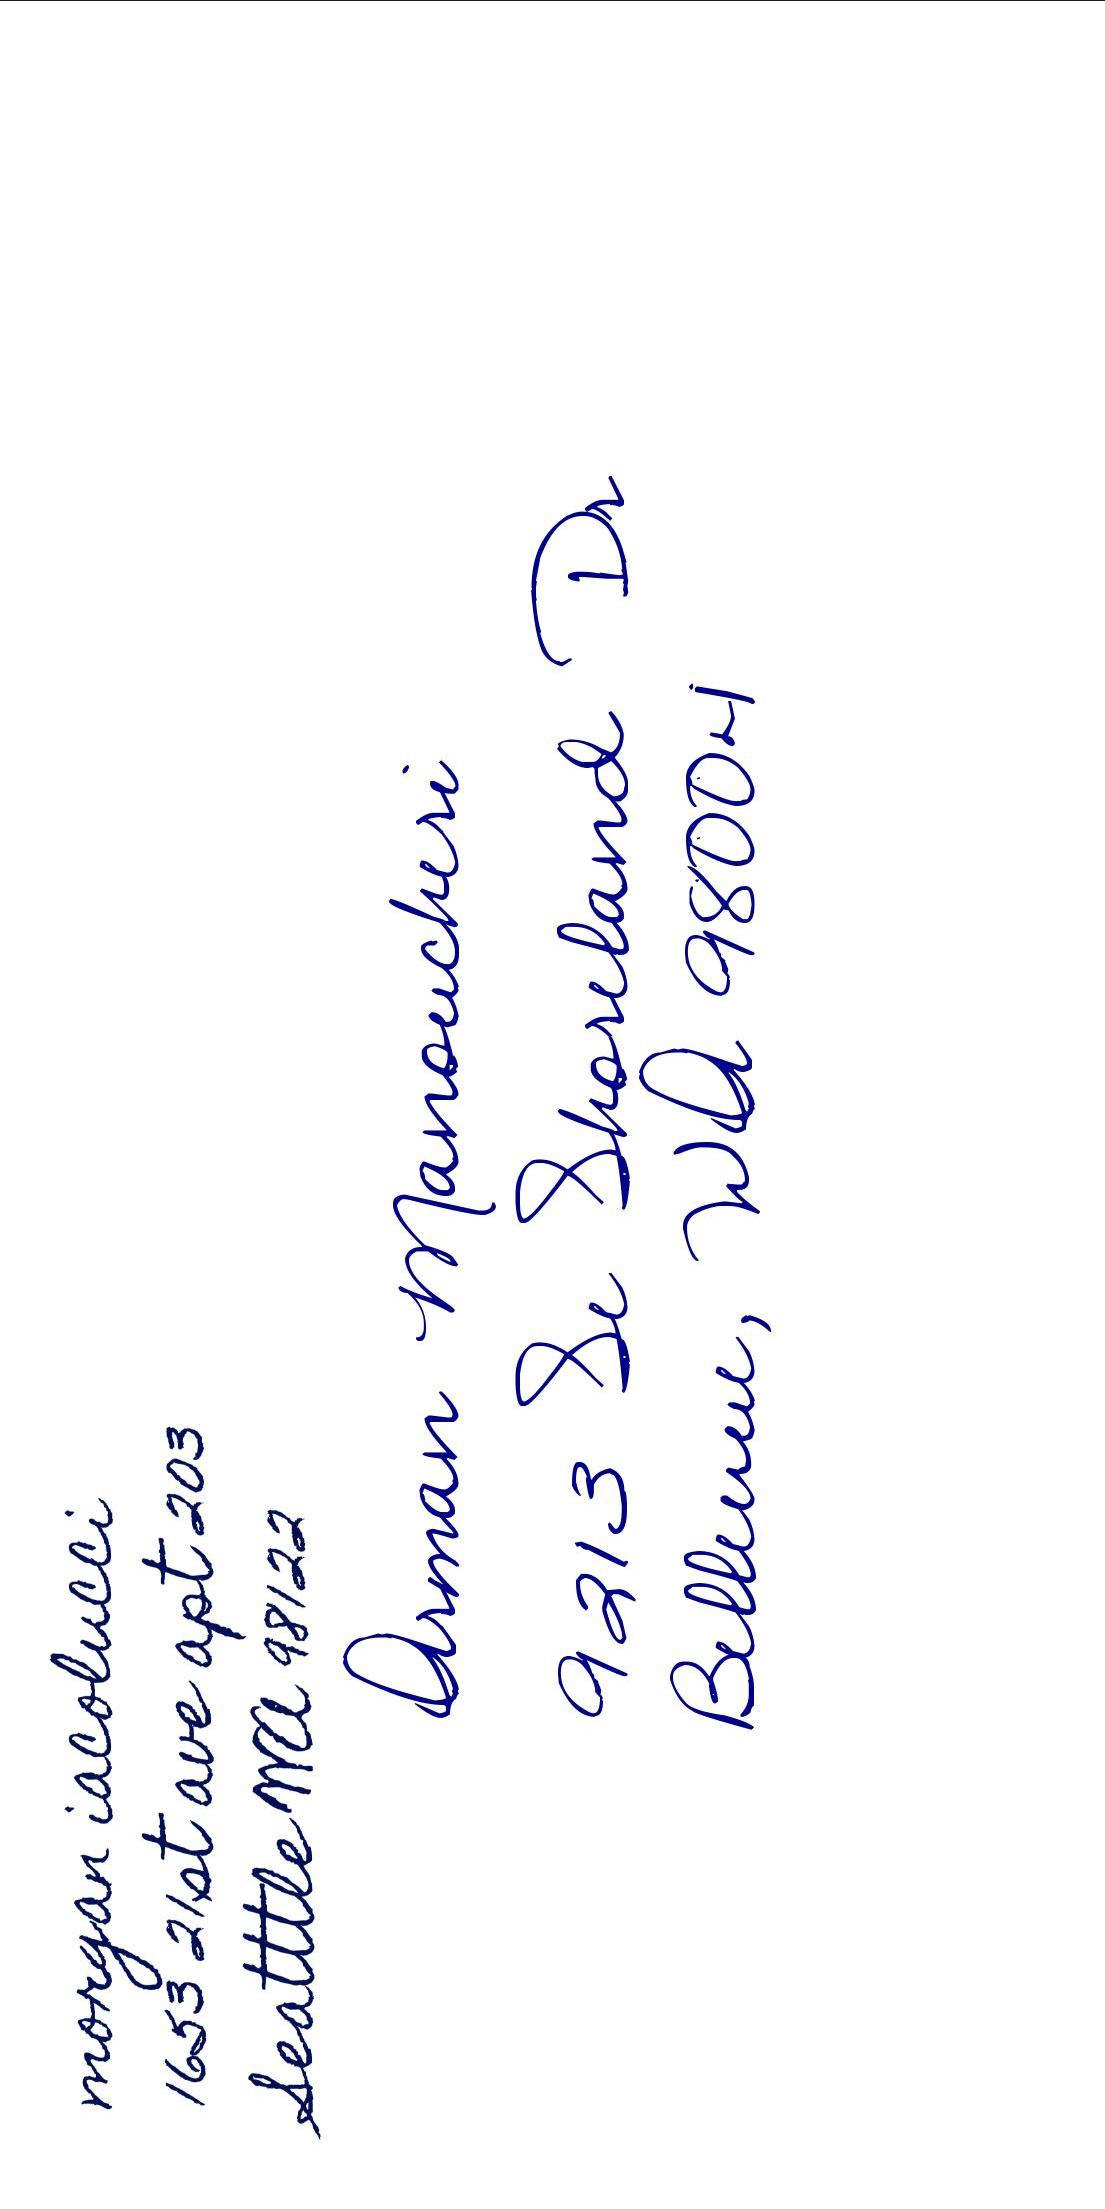 morgan iacolucci
1653 21st ave apt 203
Seattle WA 98122
Arman Manoucheri
9213 Se Shoreland Dr
Bellevue, WA 98004